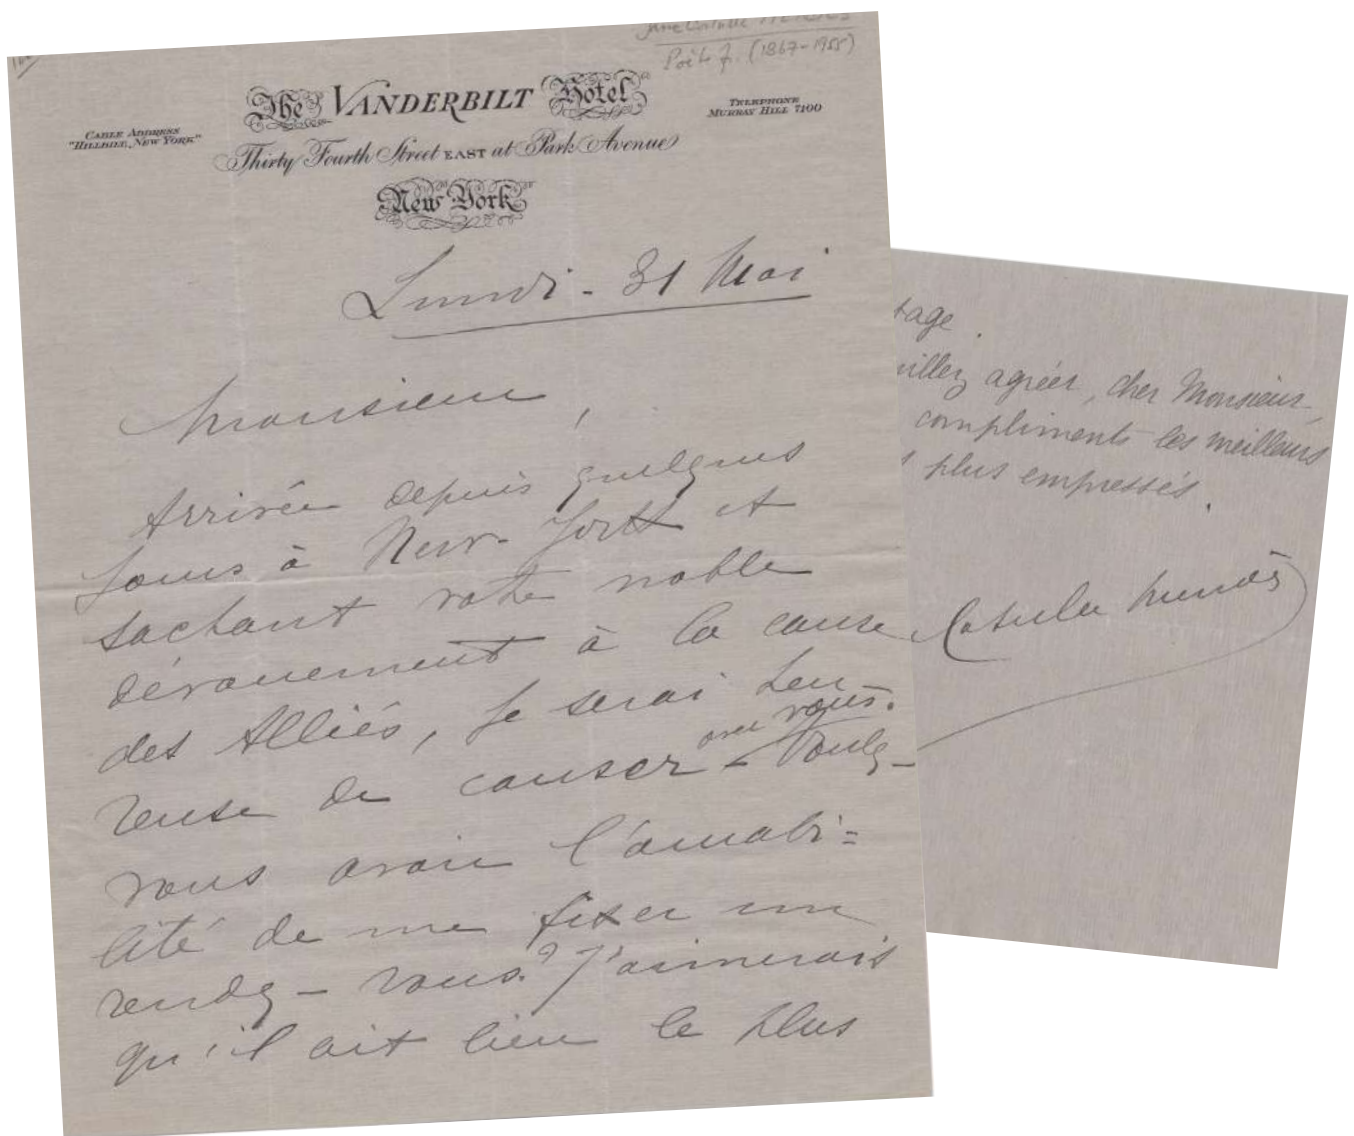 Jane Catulle MENDES
Poète f. (1867-1955)
The VANDERBILT Hotel
CABLE ADDRESS
"HILLBILT, NEW YORK"
TELEPHONE
MURRAY HILL 7100
Thirty Fourth Street EAST at Park Avenue
New York
Lundi - 31 Mai
Monsieur,
Arrivée depuis quelques
jours à New-York et
sachant votre noble
dévouement à la cause
des Alliés, je serai heu-
reuse de causer avec vous.
- Voulez-
vous avoir l'amabi=
lité de me fixer un
rendez-vous? J'aimerais
qu'il ait lieu le plus
tage.
uillez agréer, cher Monsieur,
compliments les meilleurs
s plus empressés.
Catulle Mendès